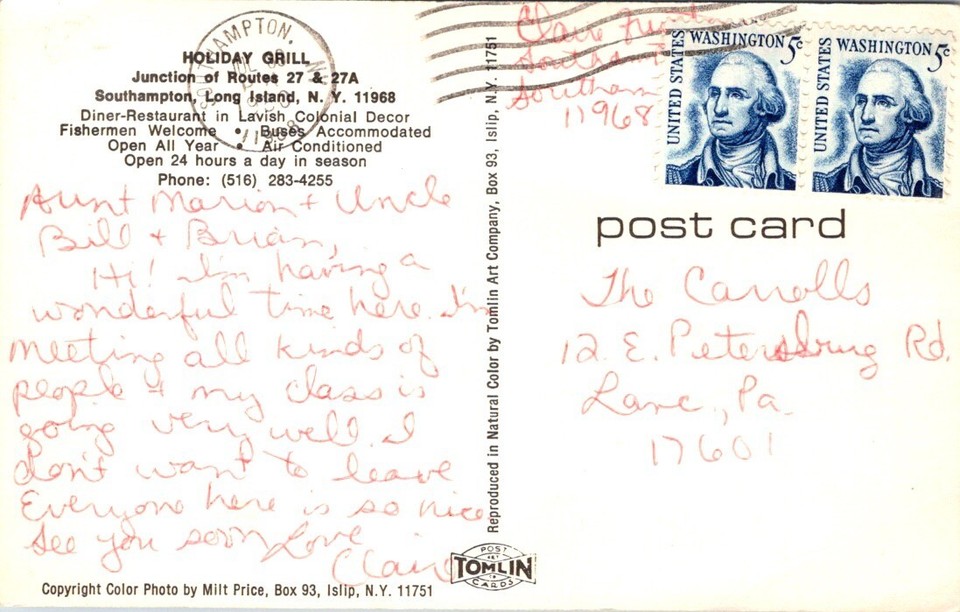 HOLIDAY GRILL
Junction of Routes 27 & 27A
Southampton, Long Island, N. Y. 11968
Diner-Restaurant in Lavish Colonial Decor
Fishermen Welcome • Buses Accommodated
Open All Year • Air Conditioned
Open 24 hours a day in season
Phone: (516) 283-4255
Aunt Marion + Uncle
Bill + Brian,
Hi! I'm having a
wonderful time here. I'm
meeting all kinds of
people + my class is
going very well. I
don't want to leave
Everyone here is so nice
See you soon Love
Claire
Copyright Color Photo by Milt Price, Box 93, Islip, N.Y. 11751
Reproduced in Natural Color by Tomlin Art Company, Box 93, Islip, N.Y. 11751
POST
ART
TOMLIN
CARDS
SOUTHAMPTON, N.Y.
11968
Claire
Southam
Southam
11968
UNITED STATES
WASHINGTON 5c
UNITED STATES
WASHINGTON 5c
post card
The Carrolls
12 E. Petersburg Rd.
Lanc., Pa.
17601